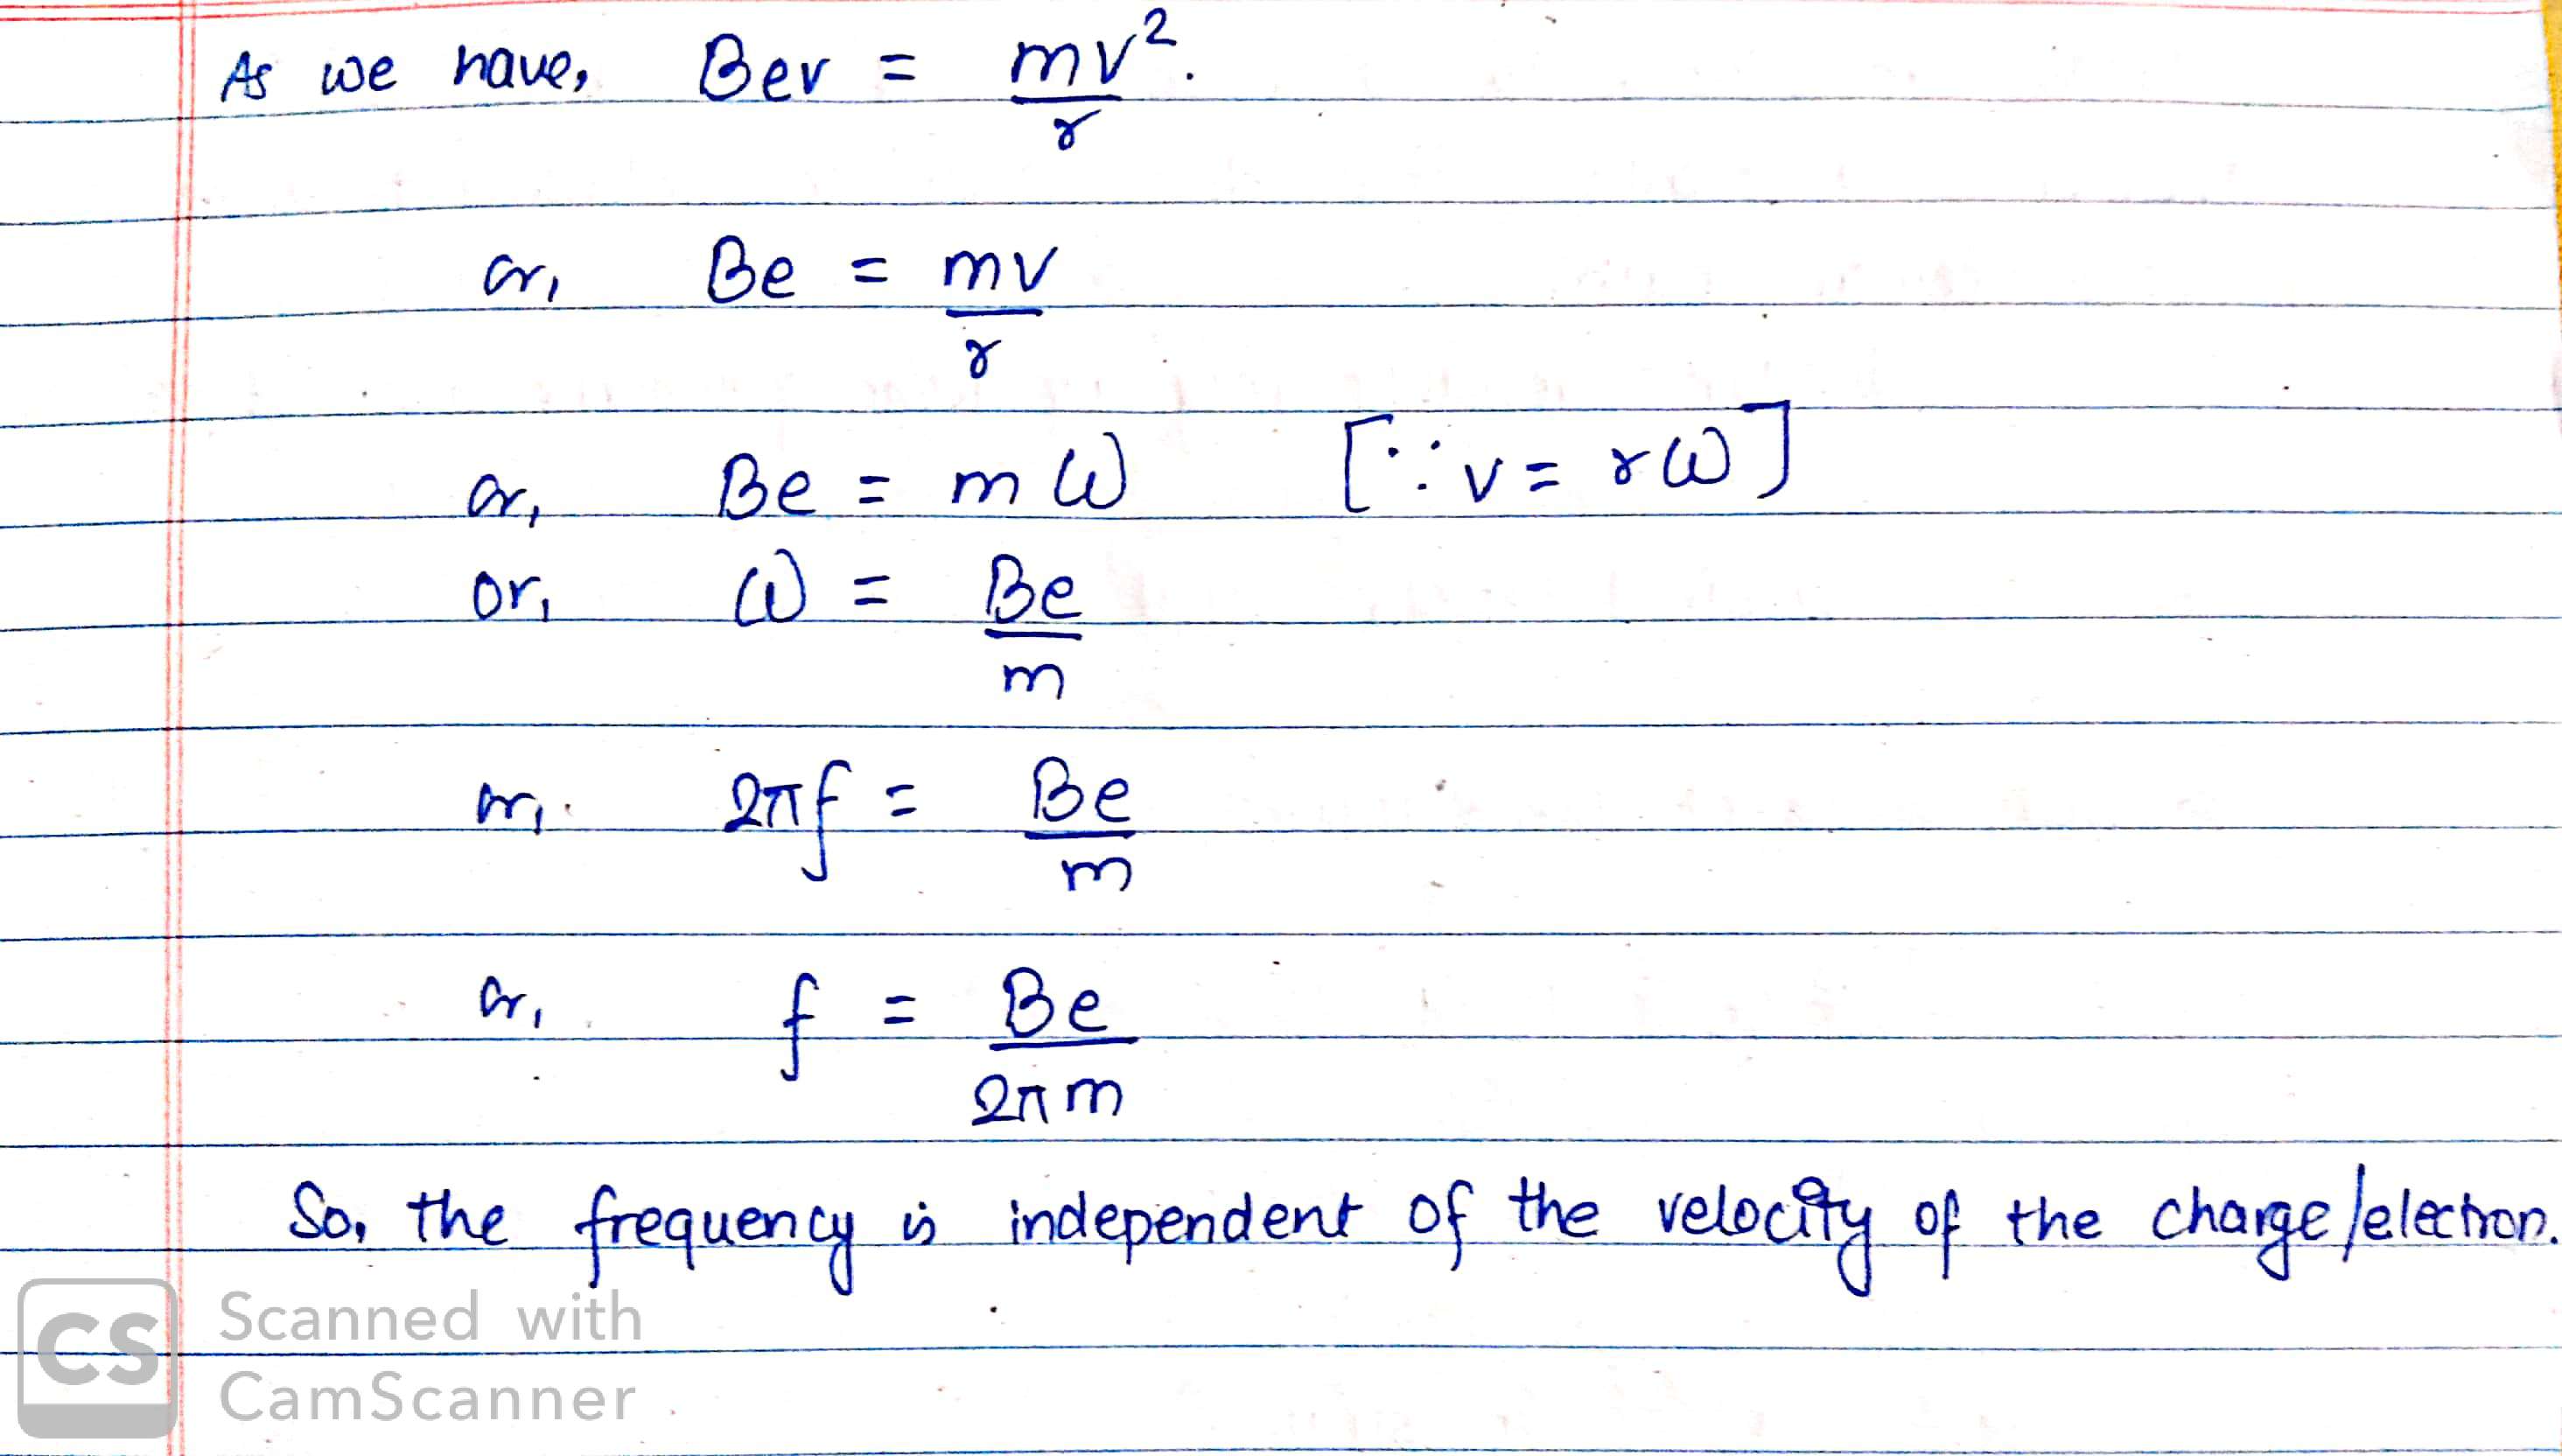 As we have, Bev = mv²/r.
or, Be = mv/r
or, Be = mω [∵ v = rω]
or, ω = Be/m
or, 2πf = Be/m
or, f = Be/2πm
So, the frequency is independent of the velocity of the charge/electron.
CS Scanned with
CamScanner